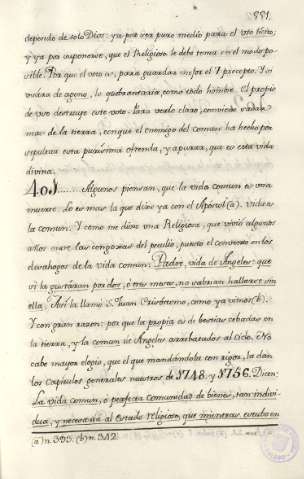 881.
depende de solo Dios: ya por ser puro medio para el uso licito;
y ya por suponerse, que el Religioso le debe tener en el modo po-
sible. Por que el voto es, para guardar mejor el 7 precepto. Y si
vudara de ageno, le quebrantaria como todo hombre. El propio
de uso destruye este voto. Para verlo claro, convierte
mas de la tierra, con que el enemigo del comun ha hecho por
sepultar esta purissima ofrenda, y apurará, que es esta vida
divina.
401....... Algunos piensan, que la vida comun es otra
muerte. Lo es mas la que dixe ya con el Apóstol (a). Vida es
la comun. Y como me dixo una Religiosa, que vivió algunos
años entre las congoxas del peculio, puesto el convento en los
desahogos de la vida comun: Padre, vida de Angeles: que
si la gustáran por dos, ó tres meses, no sabrian hallarse sin
ella. Assi la llamó S. Juan Crisóstomo, como ya vimos (b).
Y con gran razon: por que la propia es de bestias cebadas en
la tierra, y la comun de Angeles arrebatados al Cielo. No
cabe mayor elogio, que el que mandándola con rigor, la dan
los Capitulos generales nuestros de 1748. y 1756. Dicen:
La vida comun, ó perfecta comunidad de bienes, tan indivi-
dua, y necesaria al estado religioso, que mientras
(a) n. 395. (b) n. 312.